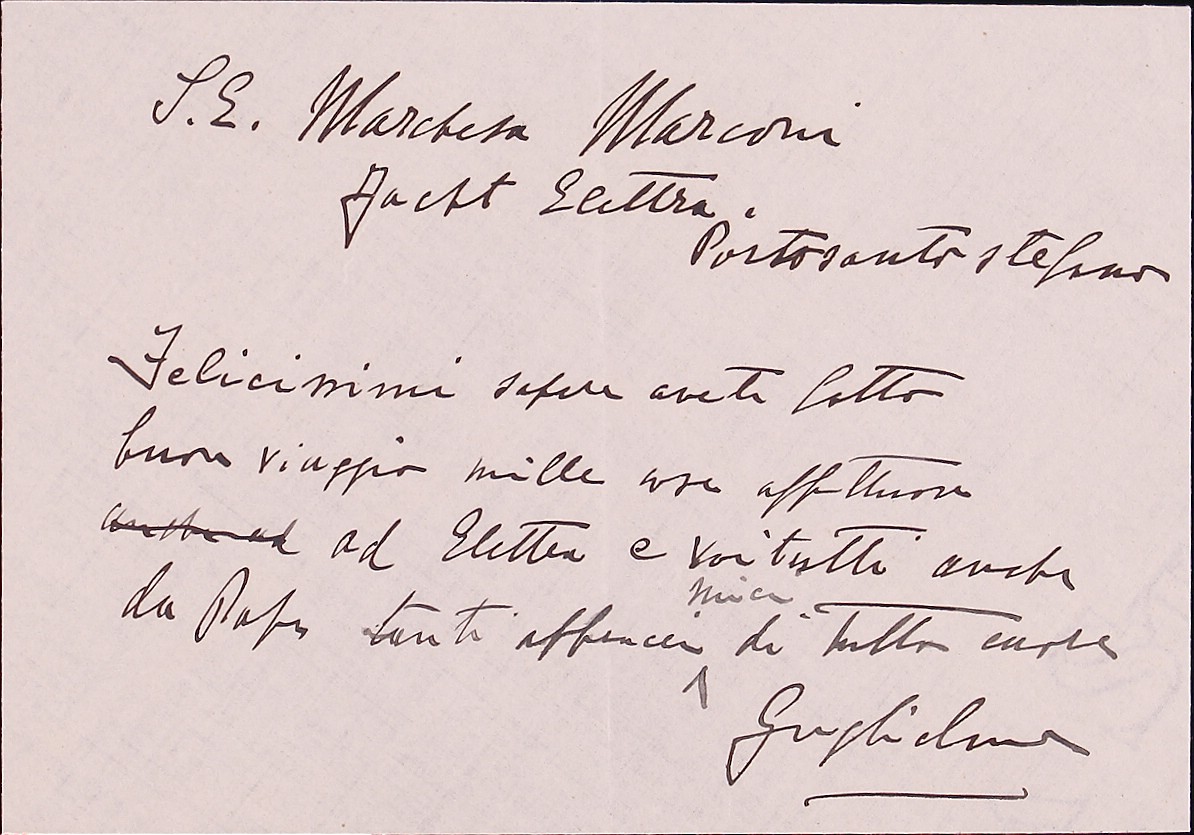 S. E. Marchesa Marconi
Jacht Elettra.
Portosanto stefano
Felicissimi sapere avete fatto
buon viaggio mille cose affettuose
anche ad ad Elettra e voi tutti anche
da Papà tanti abbracci miei di tutto cuore
Guglielmo